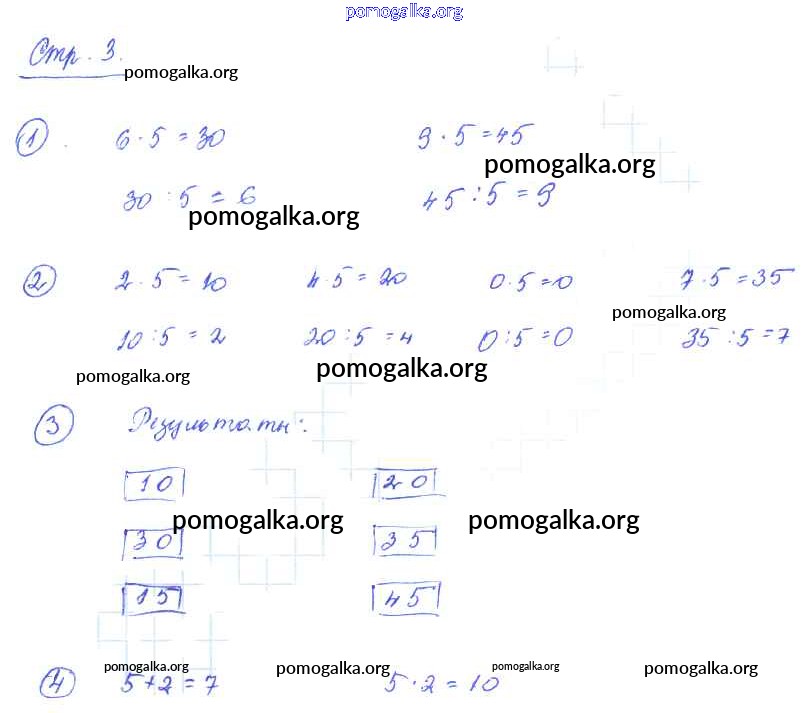 pomogalka.org
Стр. 3.
pomogalka.org
1. 6·5=30 9·5=45
pomogalka.org
30:5=6 45:5=9
pomogalka.org
2 2·5=10 4·5=20 0·5=0 7·5=35
pomogalka.org
10:5=2 20:5=4 0:5=0 35:5=7
pomogalka.org pomogalka.org
3 Результаты:
10 20
pomogalka.org pomogalka.org
30 35
15 45
pomogalka.org pomogalka.org pomogalka.org pomogalka.org
4 5+2=7 5·2=10